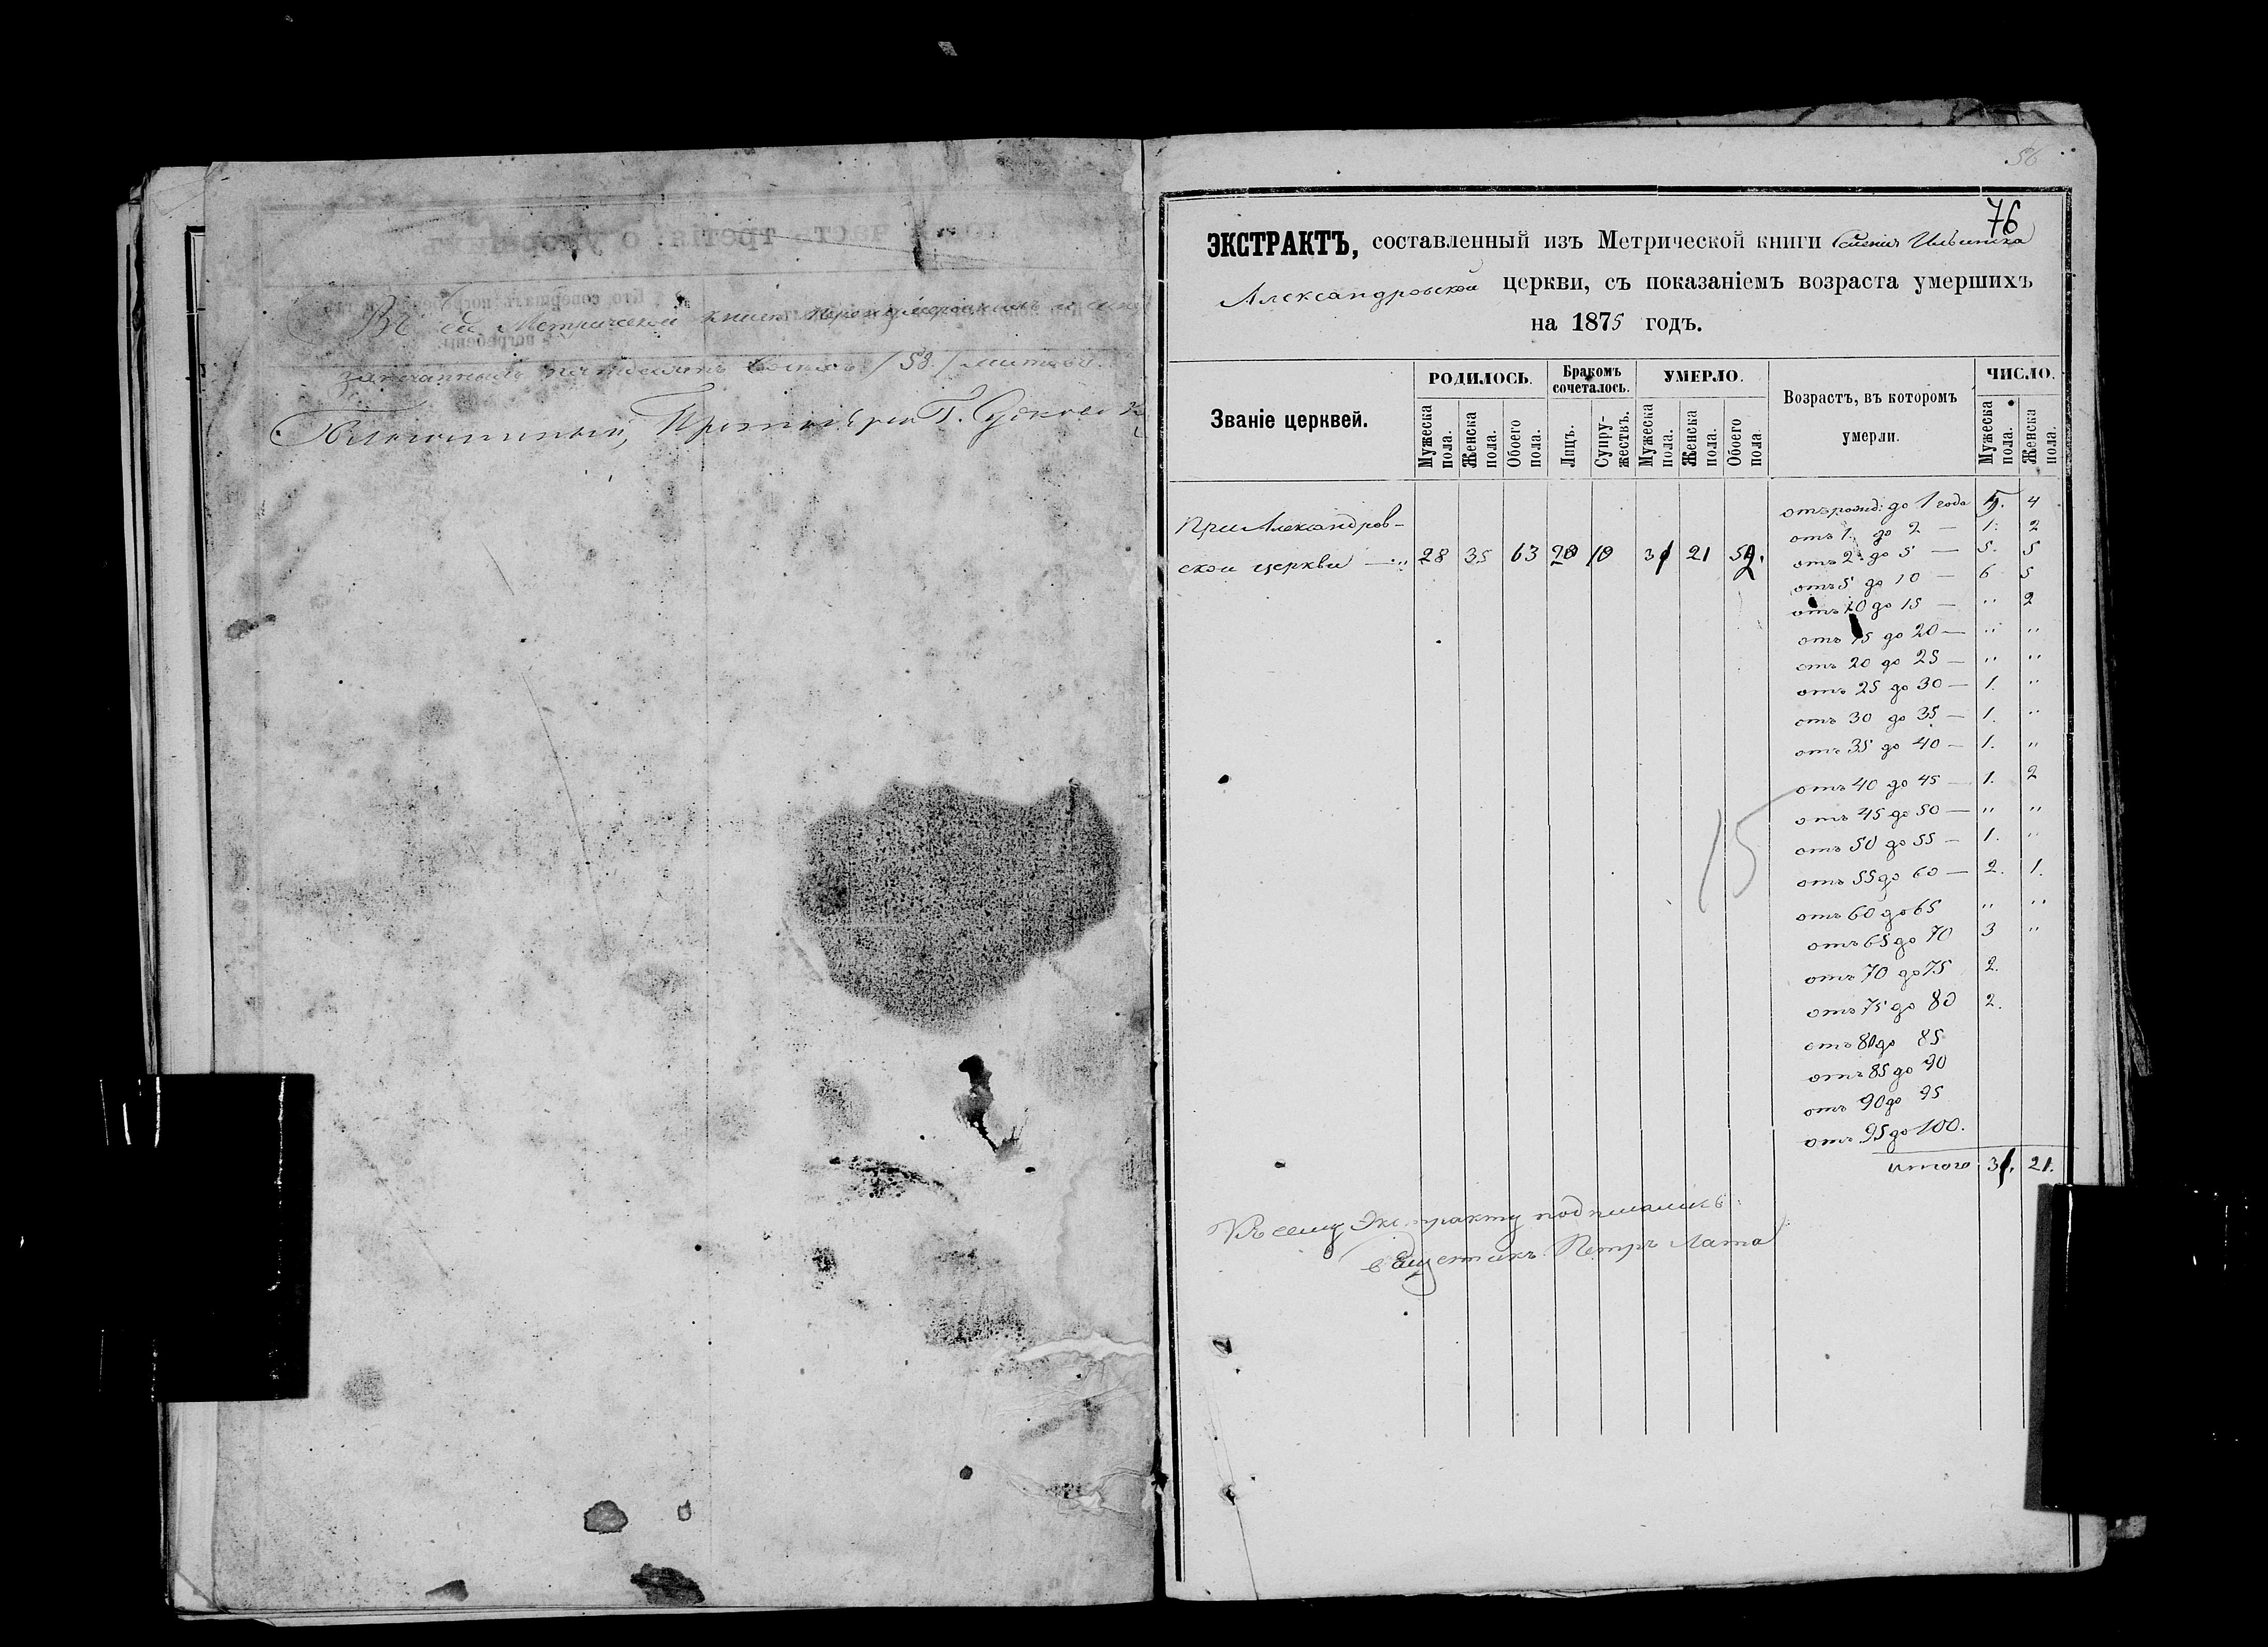 Въ сей Метрической книгѣ
/58/ листовъ.
Благочинный, Протоіерей Г.
56
76
ЭКСТРАКТЪ, составленный изъ Метрической книги
Александровской церкви, съ показаніемъ возраста умершихъ
на 1875 годъ.
Званіе церквей.
РОДИЛОСЬ.
Бракомъ сочеталось.
УМЕРЛО.
Возрастъ, въ которомъ умерли.
ЧИСЛО.
Мужеска пола.
Женска пола.
Обоего пола.
Лицъ.
Супружествъ.
Мужеска пола.
Женска пола.
Обоего пола
Мужеска пола.
Женска пола.
При Александров-
ской церкви — 28 35 63 20 10 31 21 52.
отъ рожд: до 1 года 5. 4
отъ 1. до 2 — 1. 2
отъ 2 до 5 — 5. 5
отъ 5 до 10 — 6 5
отъ 10 до 15 — " 2
отъ 15 до 20 — " "
отъ 20 до 25 — " "
отъ 25 до 30 — 1. "
отъ 30 до 35 — 1. "
отъ 35 до 40 — 1. "
отъ 40 до 45 — 1. 2
отъ 45 до 50 — " "
отъ 50 до 55 — 1. "
отъ 55 до 60 — 2. 1.
отъ 60 до 65 " "
отъ 65 до 70 3 "
отъ 70 до 75 2.
отъ 75 до 80 2.
отъ 80 до 85
отъ 85 до 90
отъ 90 до 95
отъ 95 до 100.
итого 31. 21.
15
Къ сему Экстракту подписались:
Петръ Лата